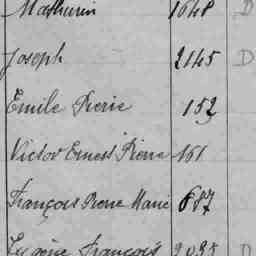 Mathurin 1648 D
Joseph 2145 D
Emile Pierre 152
Victor Ernest Pierre 161
François Pierre Marie 687
Eugène François 2035 D